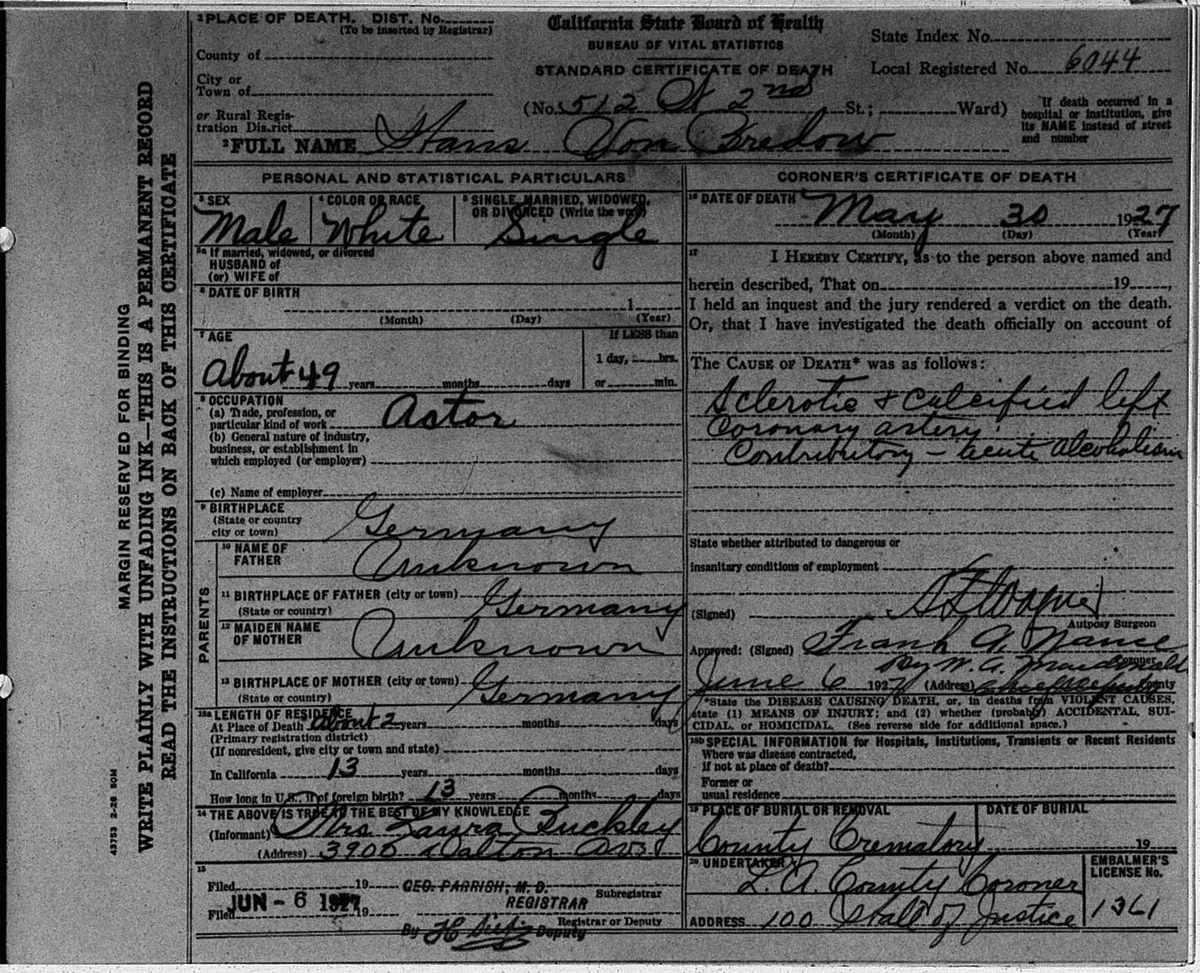 MARGIN RESERVED FOR BINDING
WRITE PLAINLY WITH UNFADING INK—THIS IS A PERMANENT RECORD
READ THE INSTRUCTIONS ON BACK OF THIS CERTIFICATE
43753 2-26 50M
California State Board of Health
BUREAU OF VITAL STATISTICS
STANDARD CERTIFICATE OF DEATH
State Index No.
Local Registered No. 6044
1 PLACE OF DEATH. DIST. No.
(To be inserted by Registrar)
County of
City or
Town of
or Rural Regis-
tration District
(No. 512 W 2nd St.; Ward)
If death occurred in a
hospital or institution, give
its NAME instead of street
and number
2 FULL NAME Hans Von Bredow
PERSONAL AND STATISTICAL PARTICULARS
3 SEX
Male
4 COLOR OR RACE
White
5 SINGLE, MARRIED, WIDOWED,
OR DIVORCED (Write the word)
Single
5a If married, widowed, or divorced
HUSBAND of
(or) WIFE of
6 DATE OF BIRTH
1
(Month) (Day) (Year)
7 AGE
About 49 years months days
If LESS than
1 day, hrs.
or min.
8 OCCUPATION
(a) Trade, profession, or
particular kind of work Actor
(b) General nature of industry,
business, or establishment in
which employed (or employer)
(c) Name of employer
9 BIRTHPLACE
(State or country
city or town) Germany
PARENTS
10 NAME OF
FATHER Unknown
11 BIRTHPLACE OF FATHER (city or town)
(State or country) Germany
12 MAIDEN NAME
OF MOTHER Unknown
13 BIRTHPLACE OF MOTHER (city or town)
(State or country) Germany
13a LENGTH OF RESIDENCE
At Place of Death about 2 years months days
(Primary registration district)
(If nonresident, give city or town and state)
In California 13 years months days
How long in U.S., if of foreign birth? 13 years months days
14 THE ABOVE IS TRUE TO THE BEST OF MY KNOWLEDGE
(Informant) Mrs Laura Buckley
(Address) 3900 Dalton Ave
15
Filed 19 GEO. PARRISH, M. D.
Subregistrar
REGISTRAR
JUN - 6 1927
Filed 19
Registrar or Deputy
By Deputy
CORONER'S CERTIFICATE OF DEATH
16 DATE OF DEATH
May 30 1927
(Month) (Day) (Year)
17 I HEREBY CERTIFY, as to the person above named and
herein described, That on 19 ,
I held an inquest and the jury rendered a verdict on the death.
Or, that I have investigated the death officially on account of
The CAUSE OF DEATH* was as follows:
Sclerotic & calcified left
Coronary artery
Contributory - acute alcoholism
State whether attributed to dangerous or
insanitary conditions of employment
(Signed) A F Wagner
Autposy Surgeon
Approved: (Signed) Frank A. Nance
Coroner
By W. A. Macdonald
June 6 1927 (Address) Chief Deputy County
*State the DISEASE CAUSING DEATH, or, in deaths from VIOLENT CAUSES,
state (1) MEANS OF INJURY; and (2) whether (probably) ACCIDENTAL, SUI-
CIDAL, or HOMICIDAL. (See reverse side for additional space.)
18b SPECIAL INFORMATION for Hospitals, Institutions, Transients or Recent Residents
Where was disease contracted,
if not at place of death?
Former or
usual residence
19 PLACE OF BURIAL OR REMOVAL
County Crematory
DATE OF BURIAL
19
20 UNDERTAKER
L. A. County Coroner
ADDRESS 100 Hall of Justice
EMBALMER'S
LICENSE No.
1361